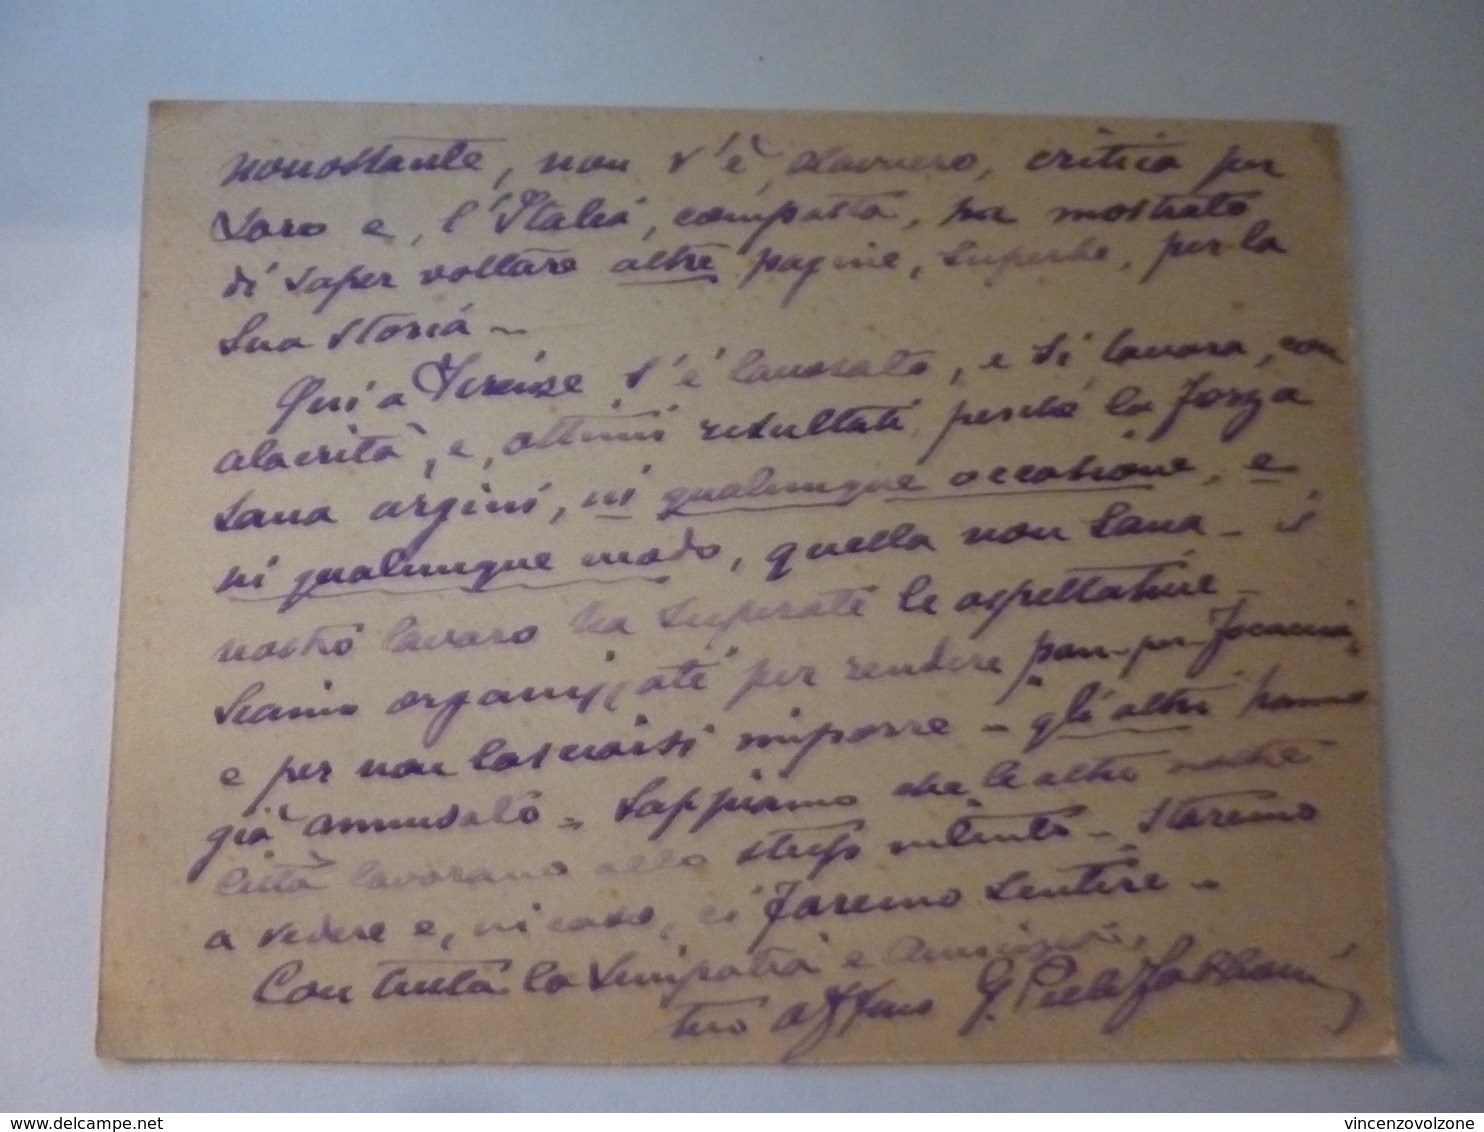 nonostante, non s'è, davvero, critica per
Loro e, l'Italia, composta, ha mostrato
di saper voltare altre pagine, superbe, per la
sua storia -
Qui a Firenze s'è lavorato, e si lavora, con
alacrità, e, ottimi risultati, perché la forza
sana argini, in qualunque occasione, e
in qualunque modo, quella non sana - il
nostro lavoro ha superate le aspettative -
siamo organizzati per rendere pan-per-focaccia
e per non lasciarsi imporre - gli altri hanno
già annusato - Sappiamo che le altre
città lavorano allo stesso intento - Staremo
a vedere e, in caso, ci faremo sentire -
Con tutta la simpatia e
tuo aff.mo G.
delcampe.net
vincenzovolzone